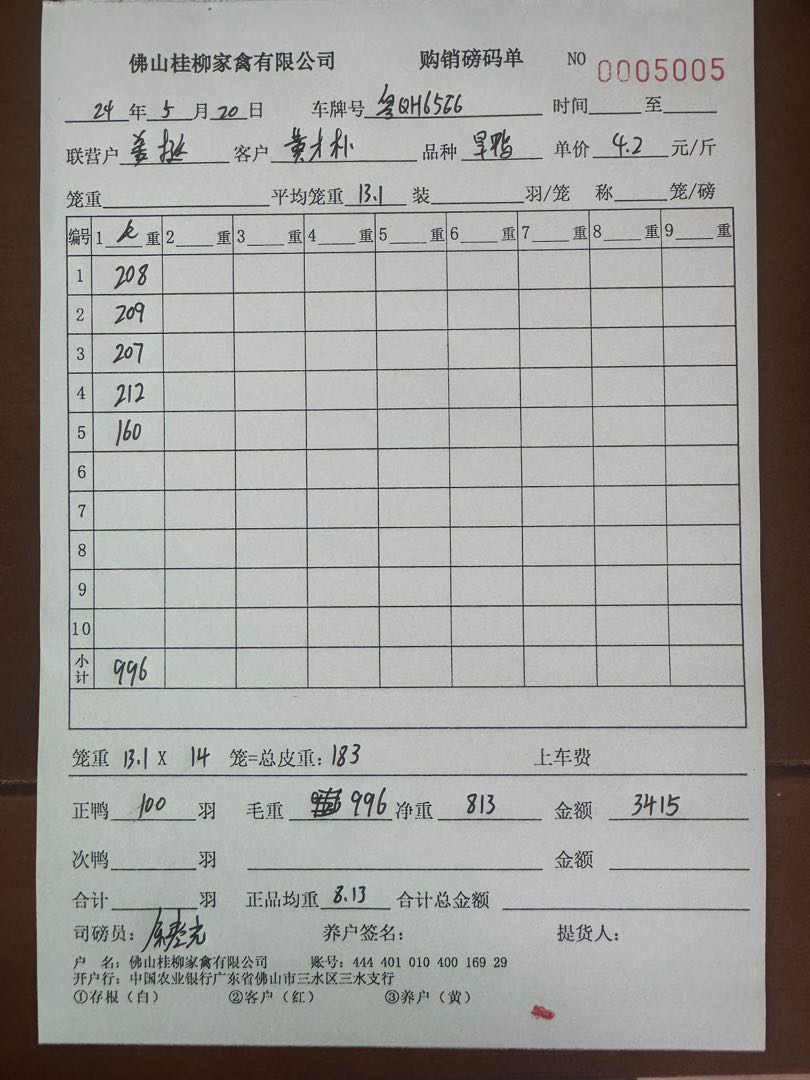 佛山桂柳家禽有限公司 购销磅码单 NO 0005005
24 年 5 月 20 日 车牌号 粤QH65E6 时间 至
联营户 客户 黄才朴 品种 旱鸭 单价 4.2 元/斤
笼重 平均笼重 13.1 装 羽/笼 称 笼/磅
编号 1 重 2 重 3 重 4 重 5 重 6 重 7 重 8 重 9 重
1 208
2 209
3 207
4 212
5 160
6
7
8
9
10
小计 996
笼重 13.1 X 14 笼=总皮重: 183 上车费
正鸭 100 羽 毛重 996 净重 813 金额 3415
次鸭 羽 金额
合计 羽 正品均重 8.13 合计总金额
司磅员: 养户签名: 提货人:
户 名: 佛山桂柳家禽有限公司 账号: 444 401 010 400 169 29
开户行: 中国农业银行广东省佛山市三水区三水支行
①存根(白) ②客户(红) ③养户(黄)